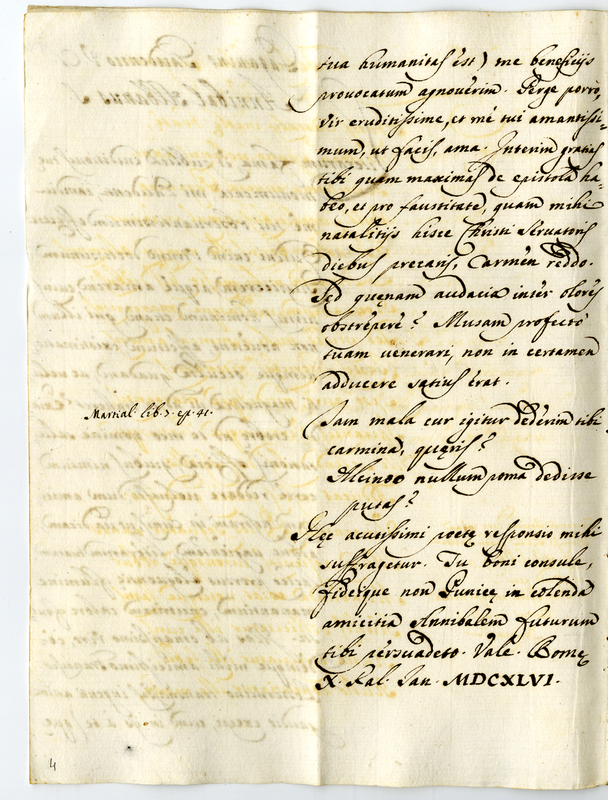 tua humanitas est) me beneficijs
provocatum agnoverim. Perge porro,
Vir eruditissime, et me tui amantissi=
mum, ut facis, ama. Interim gratias
tibi quam maximas de epistola ha=
beo, et pro faustitate, quam mihi
natalitijs hisce Christi Servatoris
diebus precaris, Carmen reddo.
Sed quęnam audacia inter olores
obstrepere? Musam profecto
tuam venerari, non in certamen
adducere satius erat.
Martial. lib. 7. ep. 41.
Iam mala cur igitur dederim tibi
carmina, quęris?
Alcinoo nullum poma dedisse
putas?
Hęc acutissimi poetę responsio mihi
suffragetur. Tu boni consule,
fideque non Punicę in colenda
amicitia Annibalem futurum
tibi persuadeto. Vale. Romę
X. Kal. Ian. MDCXLVI.
4